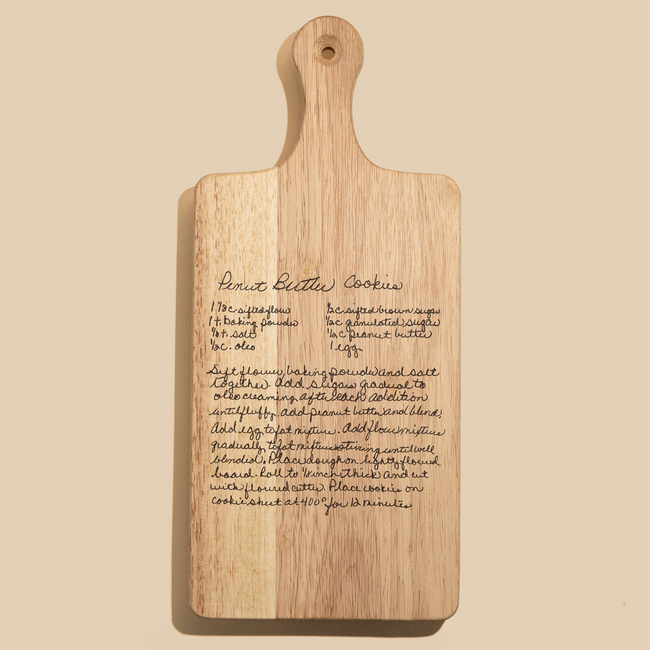 Penut Butter Cookies
1 1/2c sifted flour 1/2c sifted brown sugar
1 t. baking powder 1/2c granulated sugar
1/2t. salt 1/2c peanut butter
1/2c. oleo 1 egg
Sift flour, baking powder and salt
together. Add sugars gradual to
oleo creaming after each addition
until fluffy. add peanut butter and blend.
Add egg to fat mixture. Add flour mixture
gradually to fat mixture stirring until well
blended. Place dough on lightly floured
board. Roll to inch thick and cut
with floured cutter. Place cookies on
cookie sheet at 400° for 12 minutes